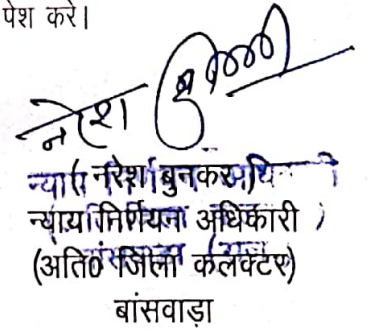 पेश करे।
नरेश
(नरेश बुनकर)
न्याय निर्णयन अधिकारी
(अति० जिला कलक्टर)
बांसवाड़ा